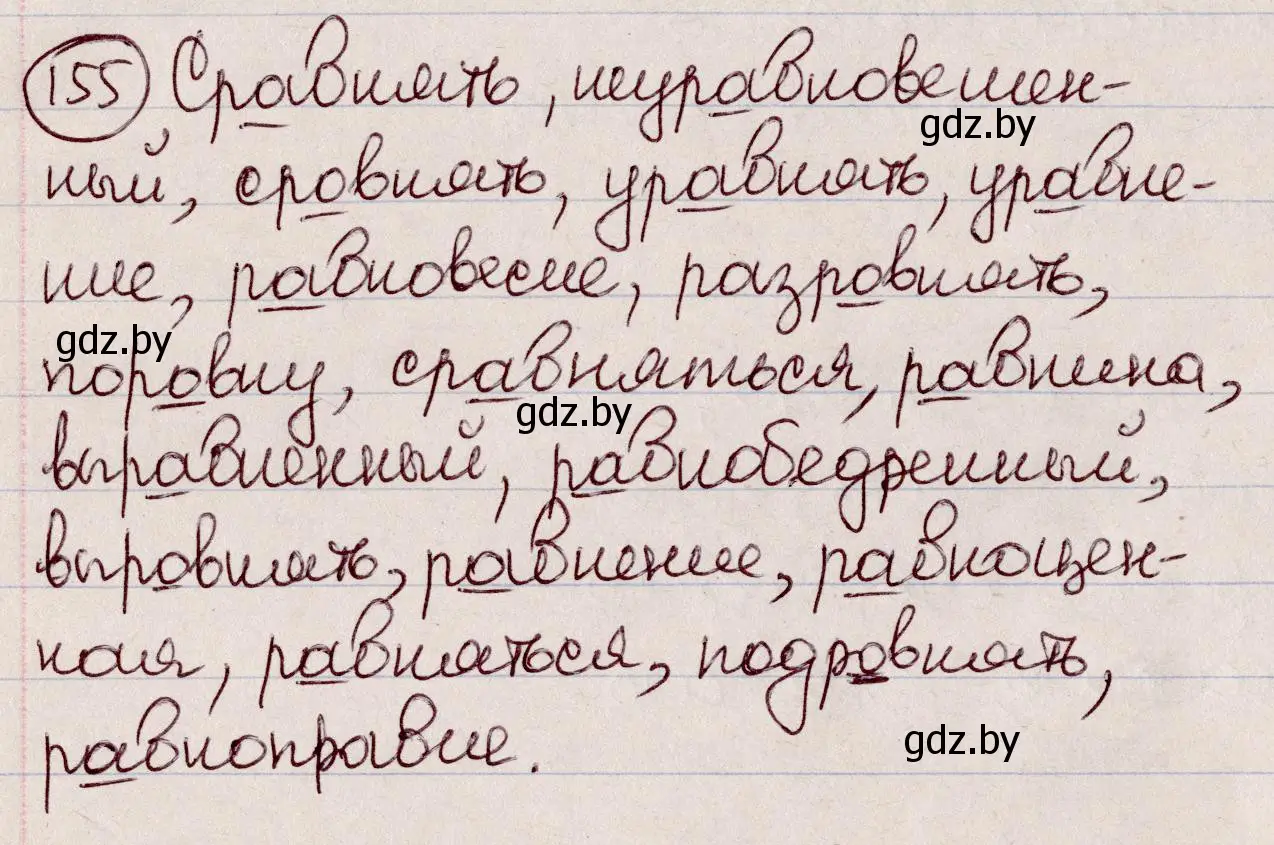 155 Сравнять, неуравновешен-
gdz.by
ный, сровнять, уравнять, уравне-
ние, равновесие, разровнять,
gdz.by
поровну, сравняться, равнина,
gdz.by
выравненный, равнобедренный,
выровнять, равнение, равноцен-
ная, равняться, подровнять,
равноправие.
gdz.by